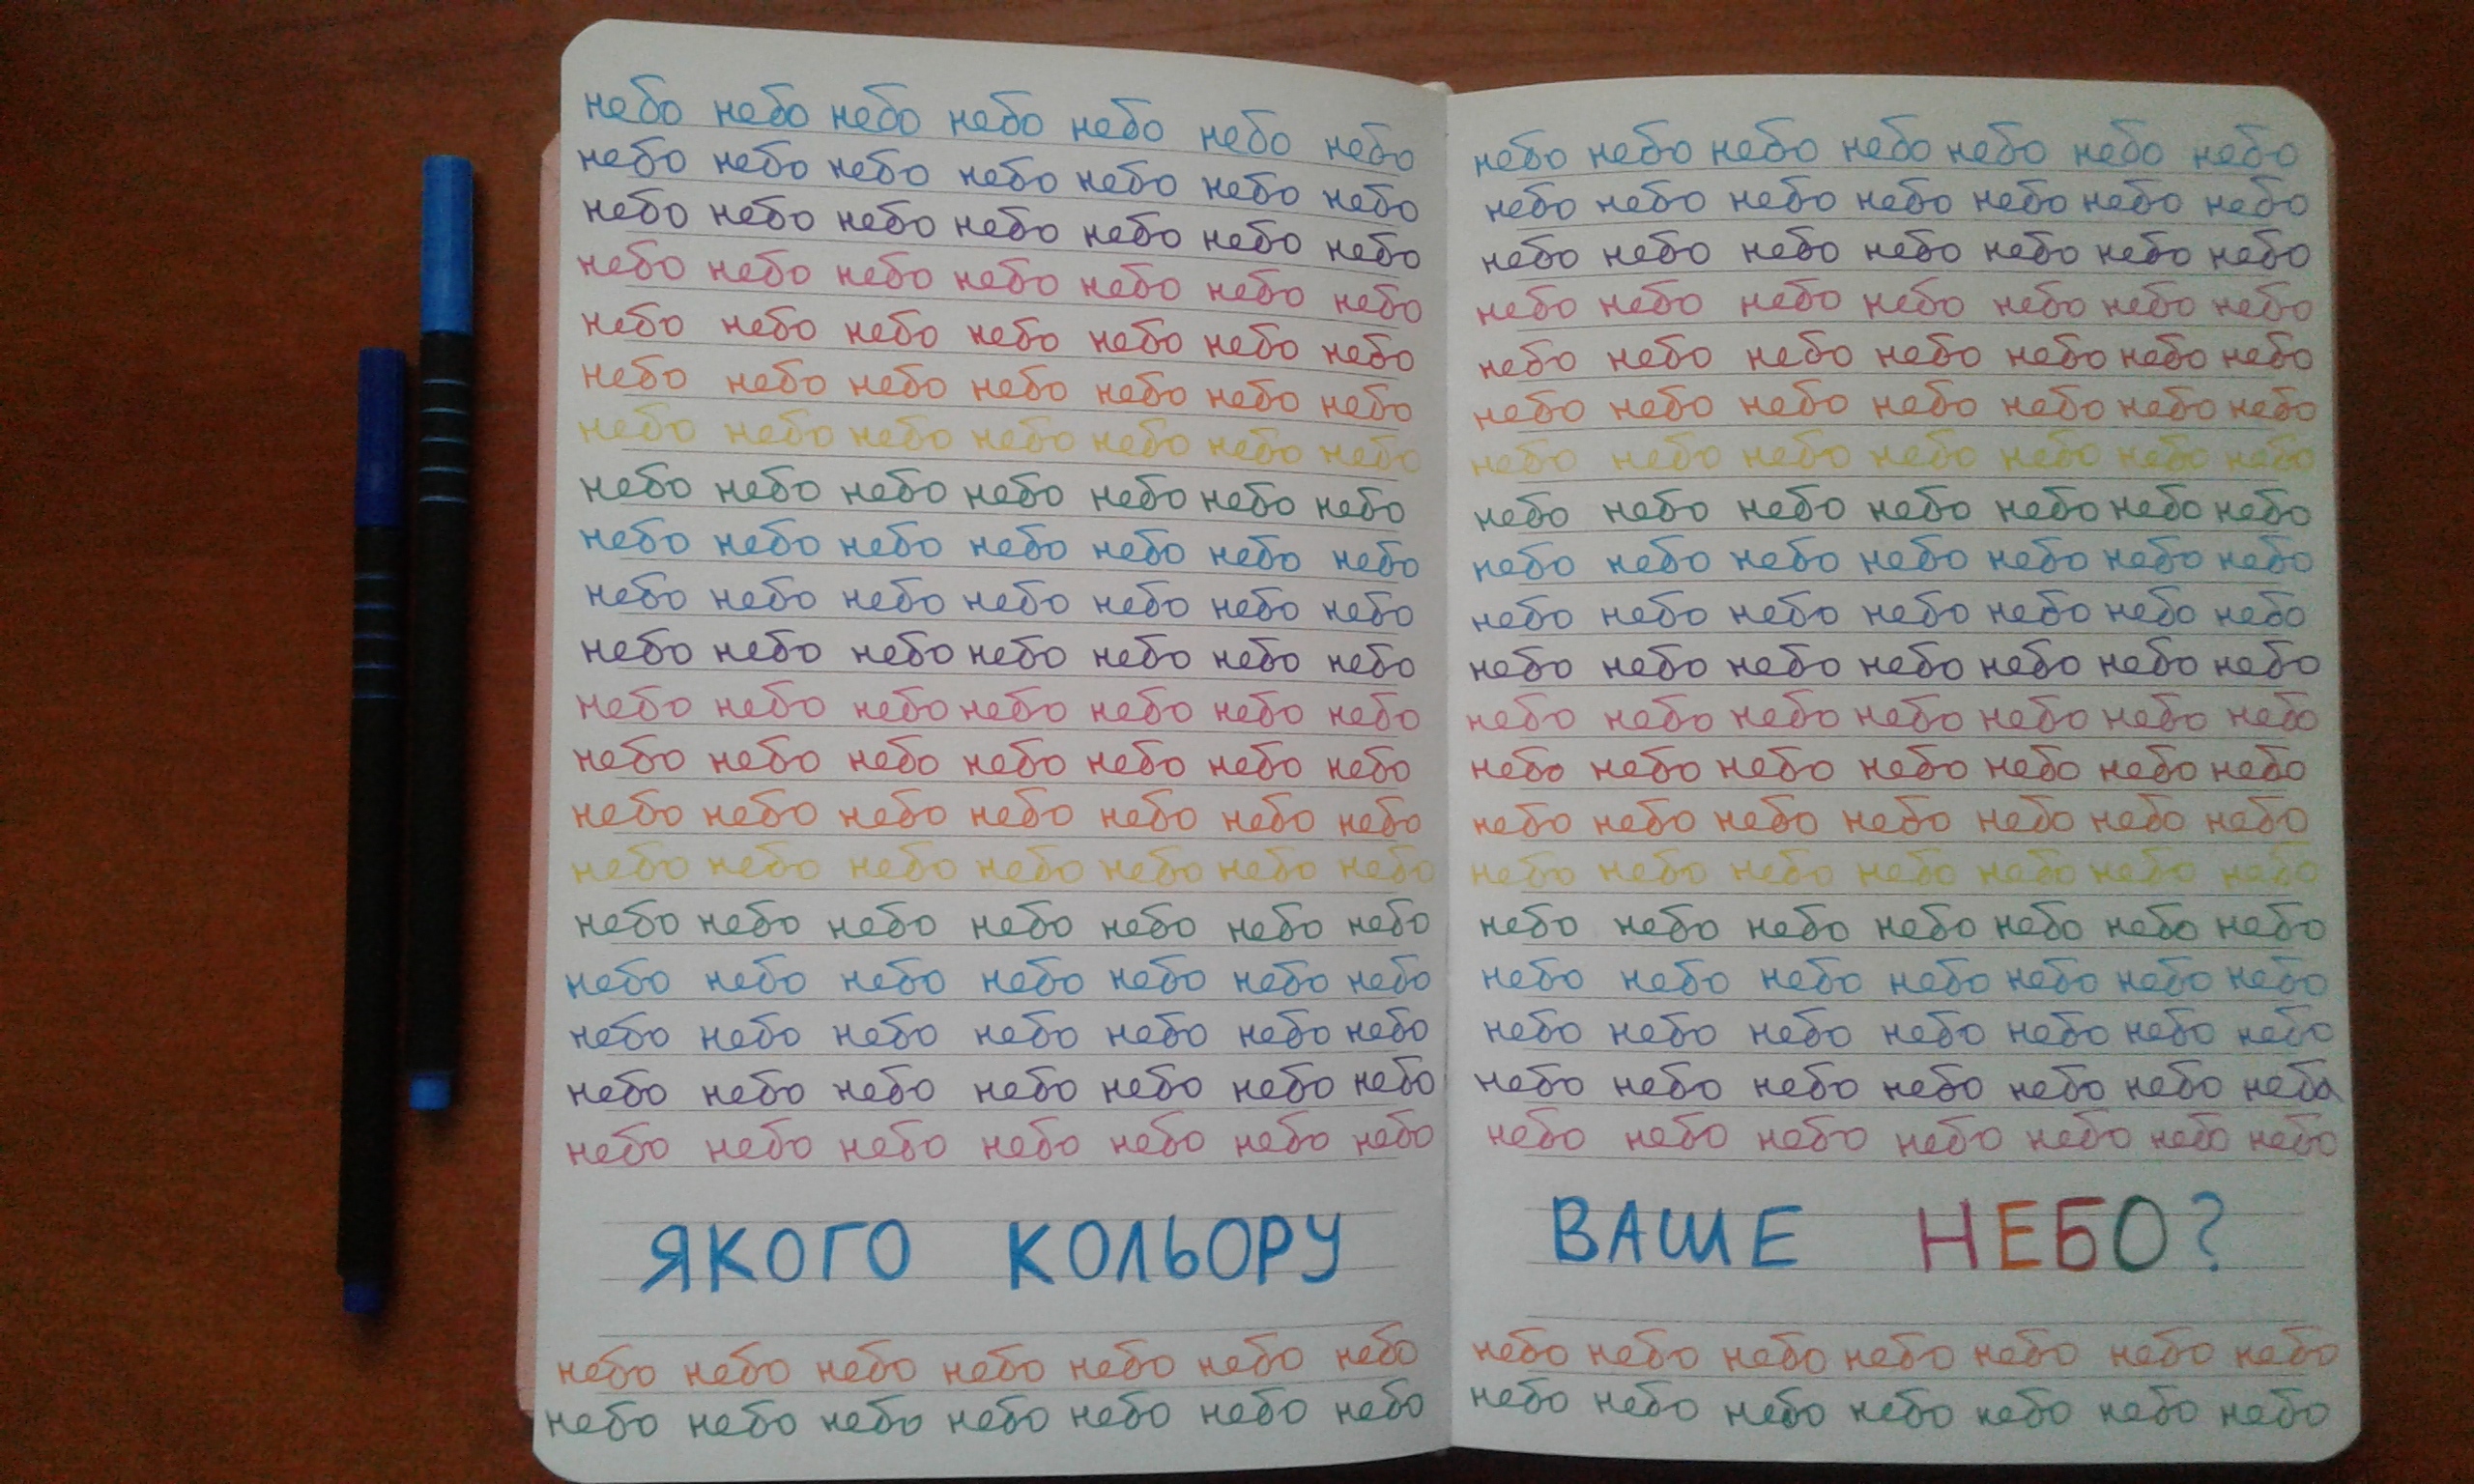 небо небо небо небо небо небо небо
небо небо небо небо небо небо небо
небо небо небо небо небо небо небо
небо небо небо небо небо небо небо
небо небо небо небо небо небо небо
небо небо небо небо небо небо небо
небо небо небо небо небо небо небо
небо небо небо небо небо небо небо
небо небо небо небо небо небо небо
небо небо небо небо небо небо небо
небо небо небо небо небо небо небо
небо небо небо небо небо небо небо
небо небо небо небо небо небо небо
небо небо небо небо небо небо небо
небо небо небо небо небо небо небо
небо небо небо небо небо небо небо
небо небо небо небо небо небо небо
небо небо небо небо небо небо небо
небо небо небо небо небо небо небо
небо небо небо небо небо небо небо
ЯКОГО КОЛЬОРУ
небо небо небо небо небо небо небо
небо небо небо небо небо небо небо
небо небо небо небо небо небо небо
небо небо небо небо небо небо небо
небо небо небо небо небо небо небо
небо небо небо небо небо небо небо
небо небо небо небо небо небо небо
небо небо небо небо небо небо небо
небо небо небо небо небо небо небо
небо небо небо небо небо небо небо
небо небо небо небо небо небо небо
небо небо небо небо небо небо небо
небо небо небо небо небо небо небо
небо небо небо небо небо небо небо
небо небо небо небо небо небо небо
небо небо небо небо небо небо небо
небо небо небо небо небо небо небо
небо небо небо небо небо небо небо
небо небо небо небо небо небо небо
небо небо небо небо небо небо небо
небо небо небо небо небо небо неба
небо небо небо небо небо небо небо
ВАШЕ НЕБО?
небо небо небо небо небо небо небо
небо небо небо небо небо небо небо